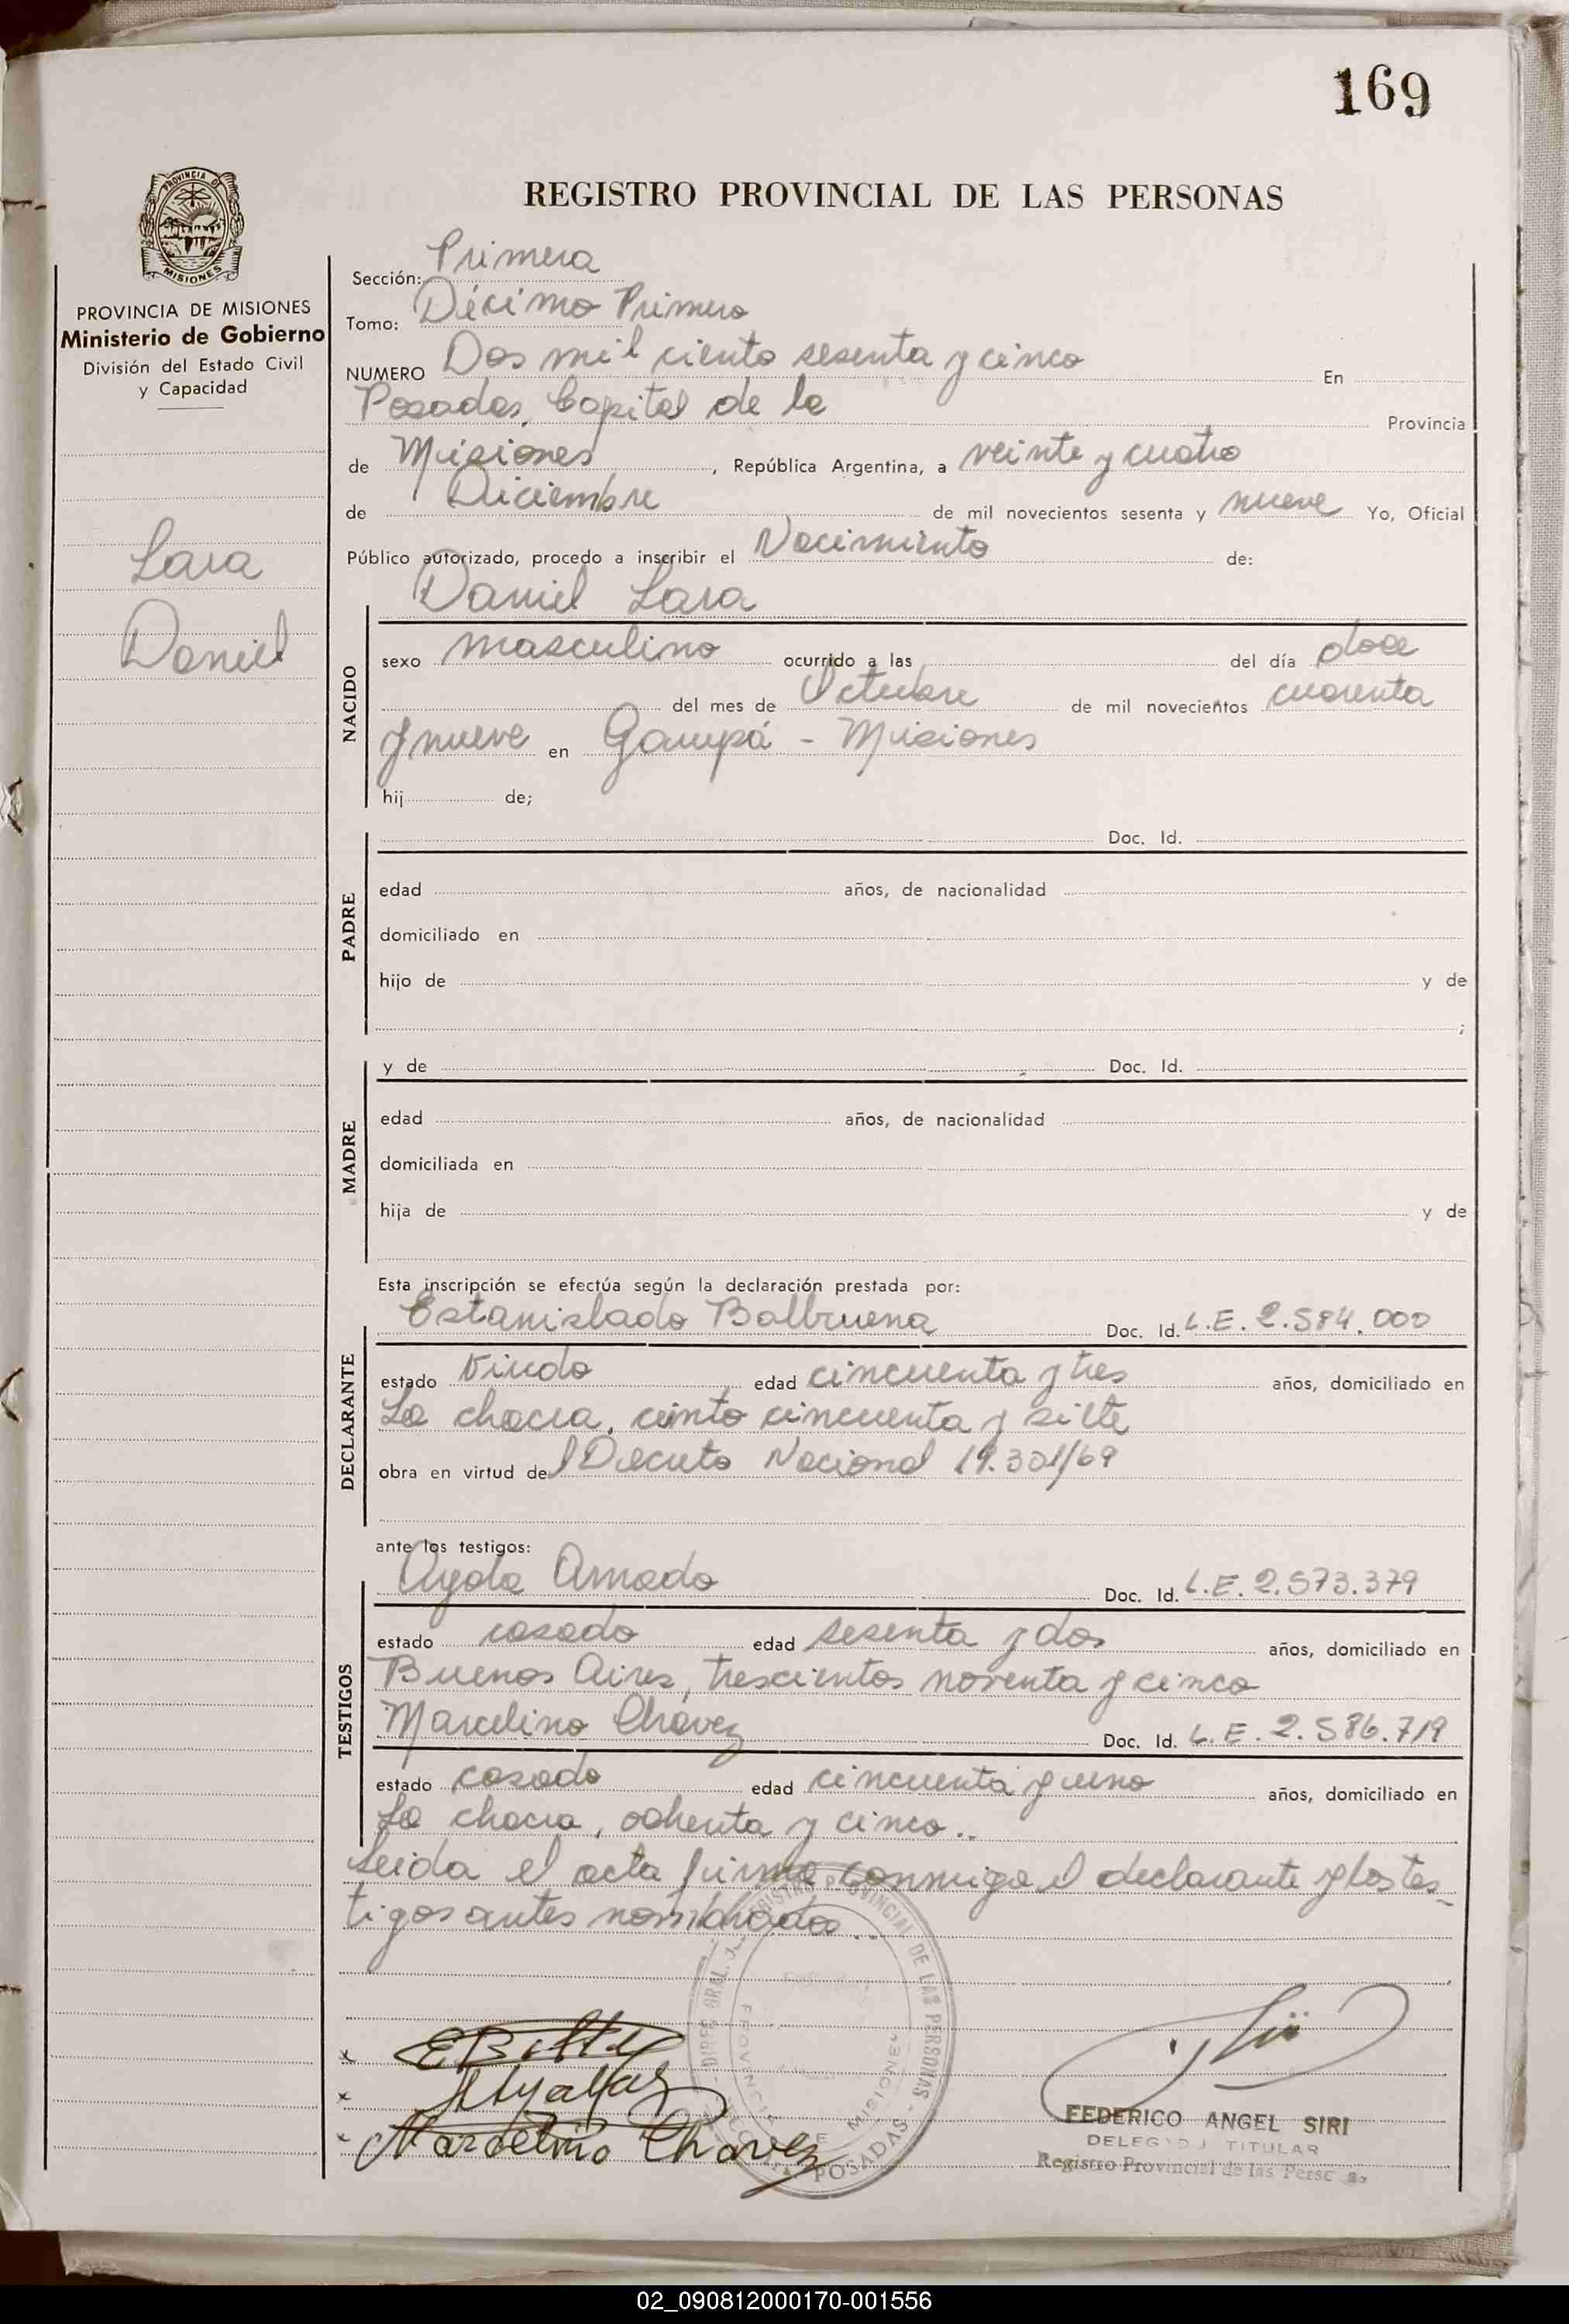 169
PROVINCIA DE MISIONES
REGISTRO PROVINCIAL DE LAS PERSONAS
PROVINCIA DE MISIONES
Ministerio de Gobierno
División del Estado Civil
y Capacidad
Lara
Daniel
Sección: Primera
Tomo: Décimo Primero
NUMERO Dos mil ciento sesenta y cinco En
Posadas, Capital de la Provincia
de Misiones, República Argentina, a veinte y cuatro
de Diciembre de mil novecientos sesenta y nueve Yo, Oficial
Público autorizado, procedo a inscribir el Nacimiento de:
Daniel Lara
NACIDO
sexo masculino ocurrido a las del día doce
del mes de Octubre de mil novecientos cuarenta
y nueve en Garupá - Misiones
hij de;
PADRE
Doc. Id.
edad años, de nacionalidad
domiciliado en
hijo de y de
;
MADRE
y de Doc. Id.
edad años, de nacionalidad
domiciliada en
hija de y de
Esta inscripción se efectúa según la declaración prestada por:
DECLARANTE
Estanislado Balbruena Doc. Id. L.E. 2.584.000
estado Viudo edad cincuenta y tres años, domiciliado en
La chacra, ciento cincuenta y siete
obra en virtud del Decreto Nacional 19.301/69
ante los testigos:
TESTIGOS
Ayala Amado Doc. Id. L.E. 2.573.379
estado casado edad sesenta y dos años, domiciliado en
Buenos Aires, trescientos noventa y cinco
Marcelino Chavez Doc. Id. L.E. 2.586.719
estado casado edad cincuenta y uno años, domiciliado en
La chacra, ochenta y cinco..
Leida el acta firma conmigo el declarante y los tes-
tigos antes nombrados..
REGISTRO PROVINCIAL DE LAS PERSONAS - POSADAS
PROVINCIA DE MISIONES
Marcelino Chavez
FEDERICO ANGEL SIRI
DELEGADO TITULAR
Registro Provincial de las Personas
02_090812000170-001556